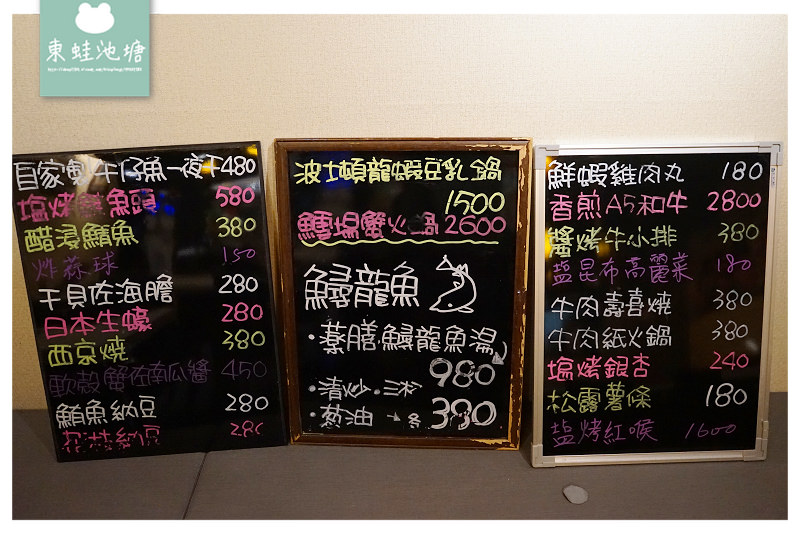 東蛙池塘
自家製午仔魚一夜干480
塩烤鮮魚頭 580
醋浸鯖魚 380
炸蒜球 150
干貝佐海膽 280
日本生蠔 280
西京燒 380
軟殼蟹佐南瓜醬 450
鮪魚納豆 280
花枝納豆 280
波士頓龍蝦豆乳鍋
1500
鱈場蟹火鍋2600
鱘龍魚
・藥膳鱘龍魚湯
980
・清炒・三杯
・葱油 各 380
鮮蝦雞肉丸 180
香煎A5和牛 2800
醬烤牛小排 380
塩昆布高麗菜 180
牛肉壽喜燒 380
牛肉紙火鍋 380
塩烤銀杏 240
松露薯條 180
塩烤紅喉 1600